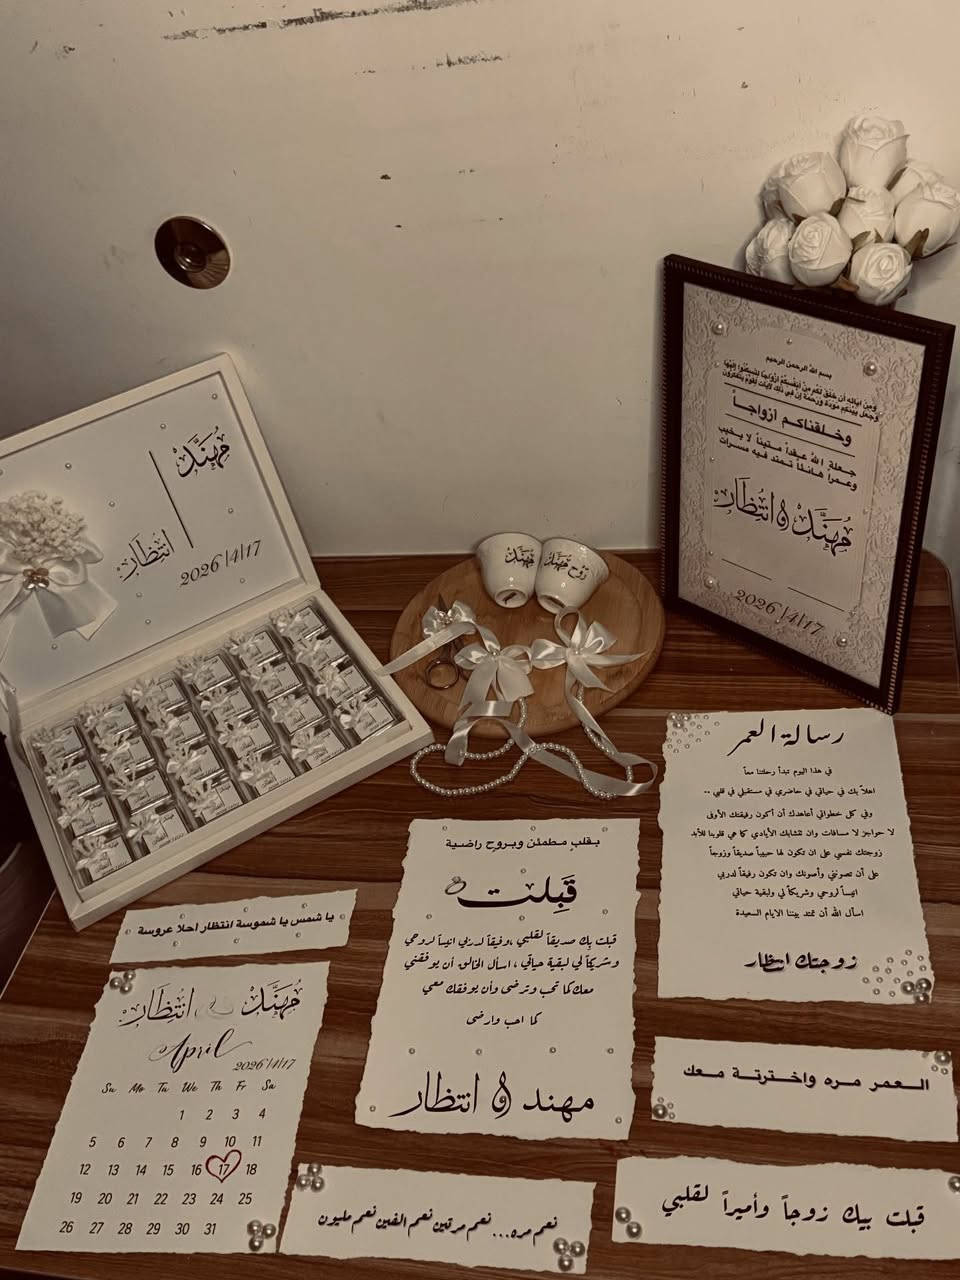 مُهَنَّد
انتظار
2026/4/17
بسم الله الرحمن الرحيم
ومن اياته أن خلق لكم من أنفسكم أزواجا لتسكنوا إليها
وجعل بينكم مودة ورحمة إن في ذلك لآيات لقوم يتفكرون
وخلقناكم ازواجاً
جعلة الله عقداً متيناً لا يخيب
وعمراً هانئاً تمتد فيه مسرات
مُهَنَّد & انتظار
2026/4/17
مُهَنَّد
زوج مُهَنَّد
رسالة العمر
في هذا اليوم تبدأ رحلتنا معاً
اهلاً بك في حياتي في حاضري في مستقبلي في قلبي ..
وفي كل خطواتي أعاهدك أن أكون رفيقتك الأوفى
لا حواجز لا مسافات وان تتشابك الأيادي كما هي قلوبنا للأبد
زوجتك نفسي على ان تكون لها حبيباً صديقاً وزوجاً
على أن تصونني وأصونك وان تكون رفيقاً لدربي
انيساً لروحي وشريكاً لي ولبقية حياتي
اسأل الله أن تمتد بيننا الايام السعيدة
زوجتك انتظار
بقلبٍ مطمئن وبروحٍ راضية
قَبِلت
قبلت بِك صديقاً لقلبي ،وفيقاً لدربي انيساً لروحي
وشريكاً لي لبقية حياتي ، اسأل الخالق أن يوفقني
معك كما تحب وترضى وأن يوفقك معي
كما احب وارضى
مهند & انتظار
يا شمس يا شموسة انتظار احلا عروسة
مُهَنَّد انتظار
April
2026/4/17
Su Mo Tu We Th Fr Sa
1 2 3 4
5 6 7 8 9 10 11
12 13 14 15 16 17 18
19 20 21 22 23 24 25
26 27 28 29 30 31
العمر مره واخترتة معك
نعم مره... نعم مرتين نعم الفين نعم مليون
قبلت بيك زوجاً وأميراً لقلبي